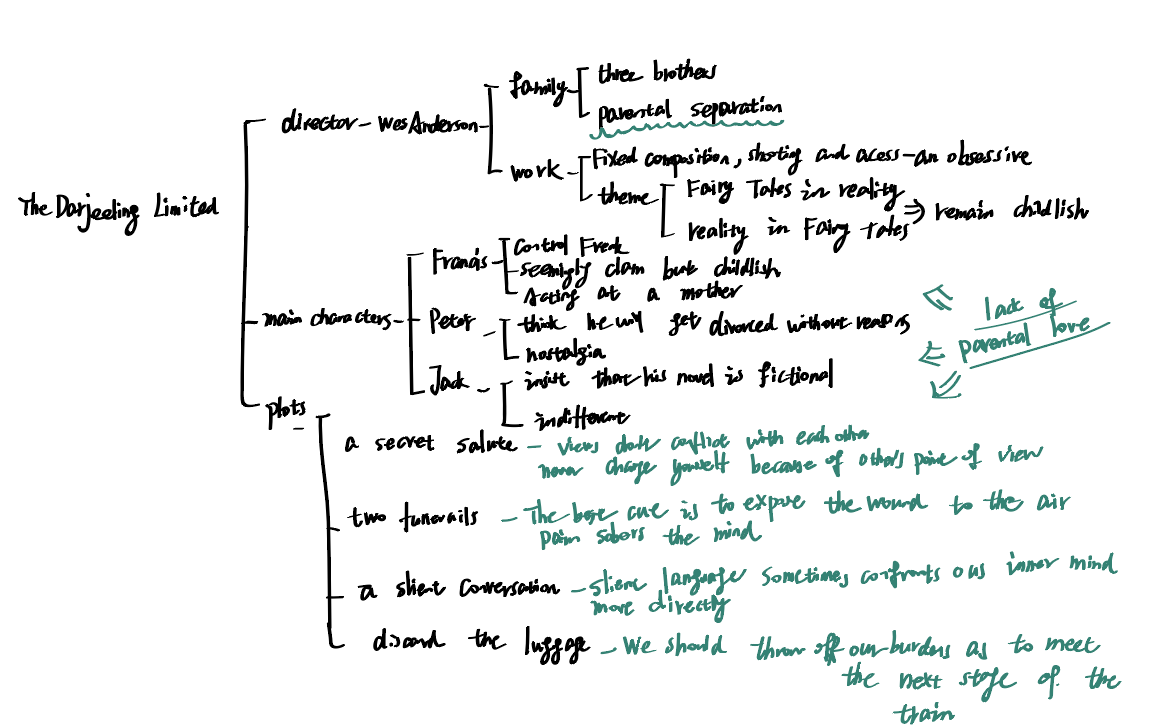 The Darjeeling Limited
director - Wes Anderson
family
three brothers
parental separation
work
Fixed composition, shoting and acess - an obsessive
theme
Fairy Tales in reality
reality in Fairy tales
⇒ remain childish
main characters
Francis
Control Freak
seemingly clam but childlish
Acting at a mother
Peter
think he will get divorced without reasons
nostalgia
Jack
insist that his novel is fictional
indifferent
lack of
parental love
plots
a secret salute - views don't conflict with each other
never change yourself because of others point of view
two funerails - The best cue is to expose the wound to the air
Pain sobers the mind
a slient conversation - slient language sometimes confronts our inner mind
more directly
discard the luggage - We should throw off our burdens as to meet
the next stage of the
train